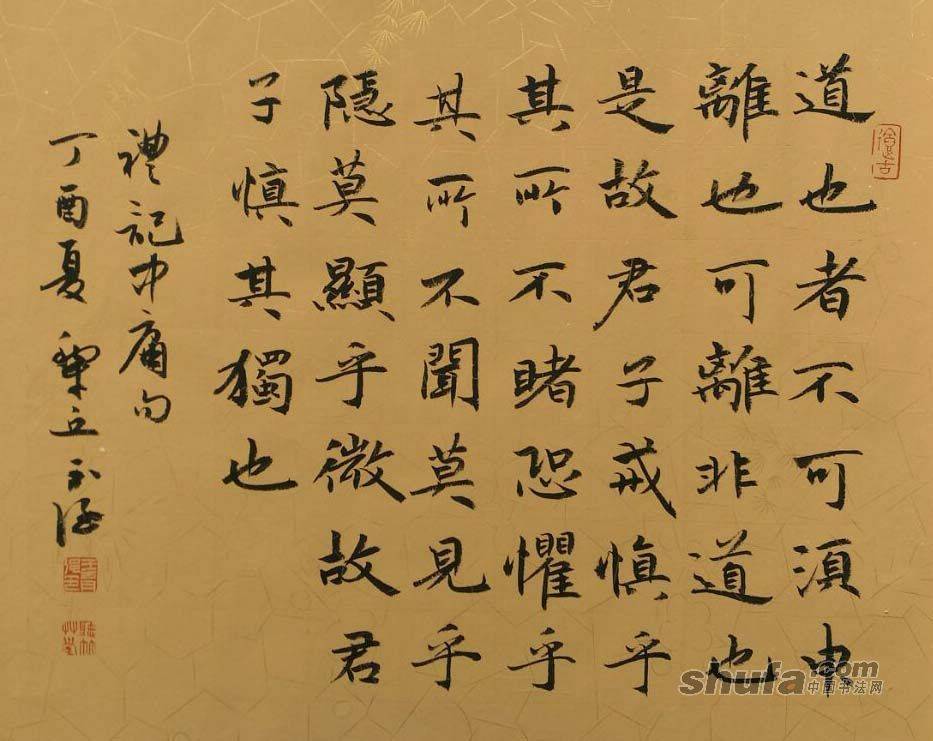 道也者不可須臾
離也可離非道也
是故君子戒慎乎
其所不睹恐懼乎
其所不聞莫見乎
隱莫顯乎微故君
子慎其獨也
禮記中庸句
丁酉夏
shufa.com
中国书法网